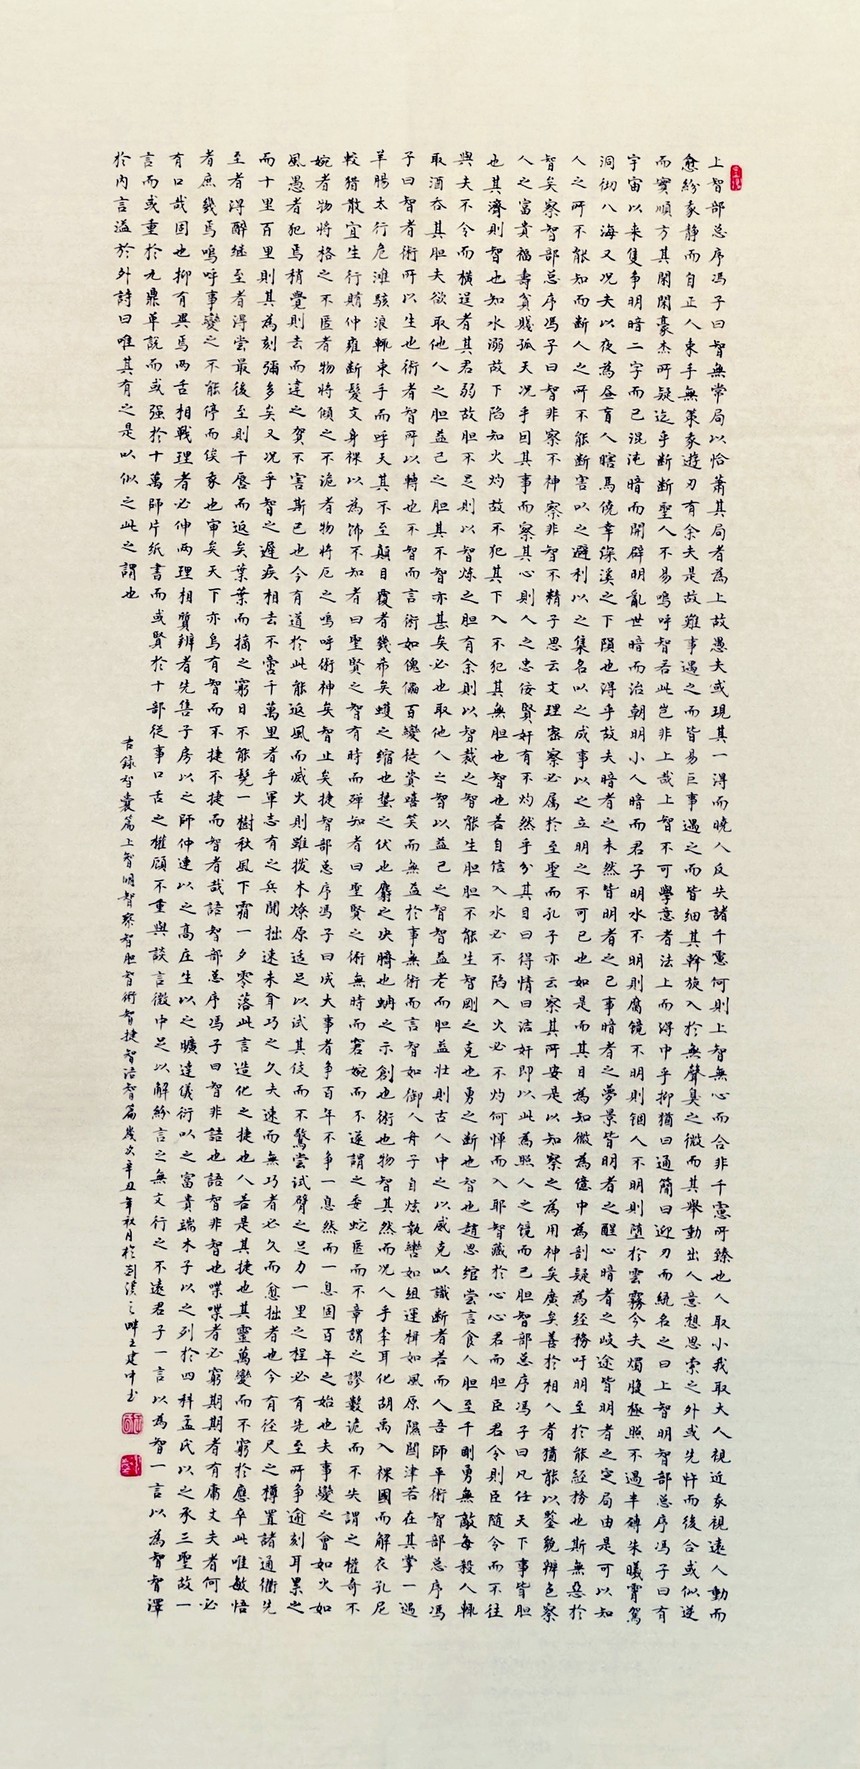 上智部总序馮子曰智無常局以恰肖其局者為上故愚夫或現其一得而曉人反失諸千慮何則上智無心而合非千慮所臻也人取小我取大人視近我視遠人動而
愈紛我静而自正人束手無策我遊刃有余夫是故難事遇之而皆易巨事遇之而皆細其斡旋入於無聲臭之微而其舉動出人意想思索之外或先忤而後合或似逆
而實順方其閑閑豪杰所疑迄乎断断聖人不易嗚呼智若此豈非上哉上智不可學意者法上而得中乎抑猶曰通簡曰迎刃而統名之曰上智明智部总序馮子曰自有
宇宙以来隻争明暗二字而已混沌暗而開辟明亂世暗而治朝明小人暗而君子明水不明則腐鏡不明則錮人不明則堕於雲霧今夫燭腹極照不過半磚朱曦霄駕
洞彻八海又况夫以夜為昼盲人瞎馬僥幸深溪之下隕也得乎故夫暗者之未然皆明者之已事暗者之夢景皆明者之醒心暗者之歧途皆明者之定局由是可以知
人之所不能知而断人之所不能断害以之避利以之集名以之成事以之立明之不可已也如是而其目為知微為億中為剖疑為經務吁明至於能經務也斯無惡於
智矣察智部总序馮子曰智非察不神察非智不精子思云文理密察必属於至聖而孔子亦云察其所安是以知察之為用神矣廣矣善於相人者猶能以鑒貌辨色察
人之富貴福壽貧賤孤夭况乎因其事而察其心則人之忠佞賢奸有不灼然乎分其目曰得情曰诘奸即以此為照人之镜而已胆智部总序馮子曰凡任天下事皆胆
也其濟則智也知水溺故不陷知火灼故不犯其不入不犯其無胆也智也若自信入水必不陷入火必不灼何惮而入耶智藏於心心君而胆臣君令則臣随令而不往
與夫不令而横逞者其君弱故胆不足則以智炼之胆有余則以智裁之智能生胆胆不能生智剛之克也勇之断也智也趙思绾尝言食人胆至千剛勇無敵每殺人辄
取酒吞其胆夫欲取他人之胆益己之胆其不智亦甚矣必也取他人之智以益己之智智益老而胆益壮則古人中之以威克以識断者若而人吾師乎術智部总序馮
子曰智者術所以生也術者智所以轉也不智而言術如傀儡百變徒资嘻笑而無益於事無術而言智如御人舟子自炫執轡如組運楫如風原隰關津若在其掌一遇
羊腸太行危滩骇浪辄束手而呼天其不至颠且覆者幾希矣蠖之缩也蛰之伏也麝之决臍也蚺之示創也術也物智其然而况人乎李耳化胡禹入裸國而解衣孔尼
較猎散宜生行賄仲雍斷髮文身裸以為饰不知者曰聖賢之智有時而殫知者曰聖賢之術無時而窘婉而不遂謂之委蛇匿而不章謂之謬數诡而不失謂之權奇不
婉者物將格之不匿者物將傾之不诡者物將厄之嗚呼術神矣智止矣捷智部总序馮子曰成大事者争百年不争一息然而一息固百年之始也夫事變之會如火如
風愚者犯焉稍覺則去而違之賀不害斯已也今有道於此能返風而滅火則雖拔木燎原适足以試其伎而不驚尝試譬之足力一里之程必有先至所争逾刻耳累之
而十里百里則其為刻彌多矣又况乎智之遲疾相去不啻千萬里者乎軍志有之兵聞拙速未聞巧之久夫速而無巧者必久而愈拙者也今有徑尺之樽置諸通衢先
至者得醉继至者得尝最後至則干唇而返矣葉葉而摘之窮日不能髡一樹秋風下霜一夕零落此言造化之捷也人若是其捷也其靈萬變而不窮於應卒此唯敏悟
者庶幾焉嗚呼事變之不能停而俟我也审矣天下亦烏有智而不捷不捷而智者哉語智部总序馮子曰智非語也語智非智也喋喋者必窮期期者有庸丈夫者何必
有口哉固也抑有異焉两舌相戰理者必伸两理相質辨者先售子房以之師仲連以之高庄生以之曠達儀衍以之富貴端木子以之列於四科孟氏以之承三聖故一
言而或重於九鼎单説而或强於十萬師片紙書而或賢於十部從事口舌之權顧不重與談言微中足以解紛言之無文行之不遠君子一言以為智一言以為智智澤
於内言溢於外詩曰唯其有之是以似之此之謂也
右録智囊篇上智明智察智胆智術智捷智語智篇歲次辛丑年秋月於剡溪之畔王建中书